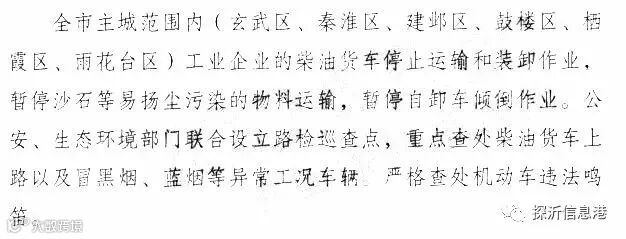 全市主城范围内（玄武区、秦淮区、建邺区、鼓楼区、栖
霞区、雨花台区）工业企业的柴油货车停止运输和装卸作业，
暂停沙石等易扬尘污染的物料运输，暂停自卸车倾倒作业。公
安、生态环境部门联合设立路检巡查点，重点查处柴油货车上
路以及冒黑烟、蓝烟等异常工况车辆。严格查处机动车违法鸣
笛。
大数跨境
探沂信息港